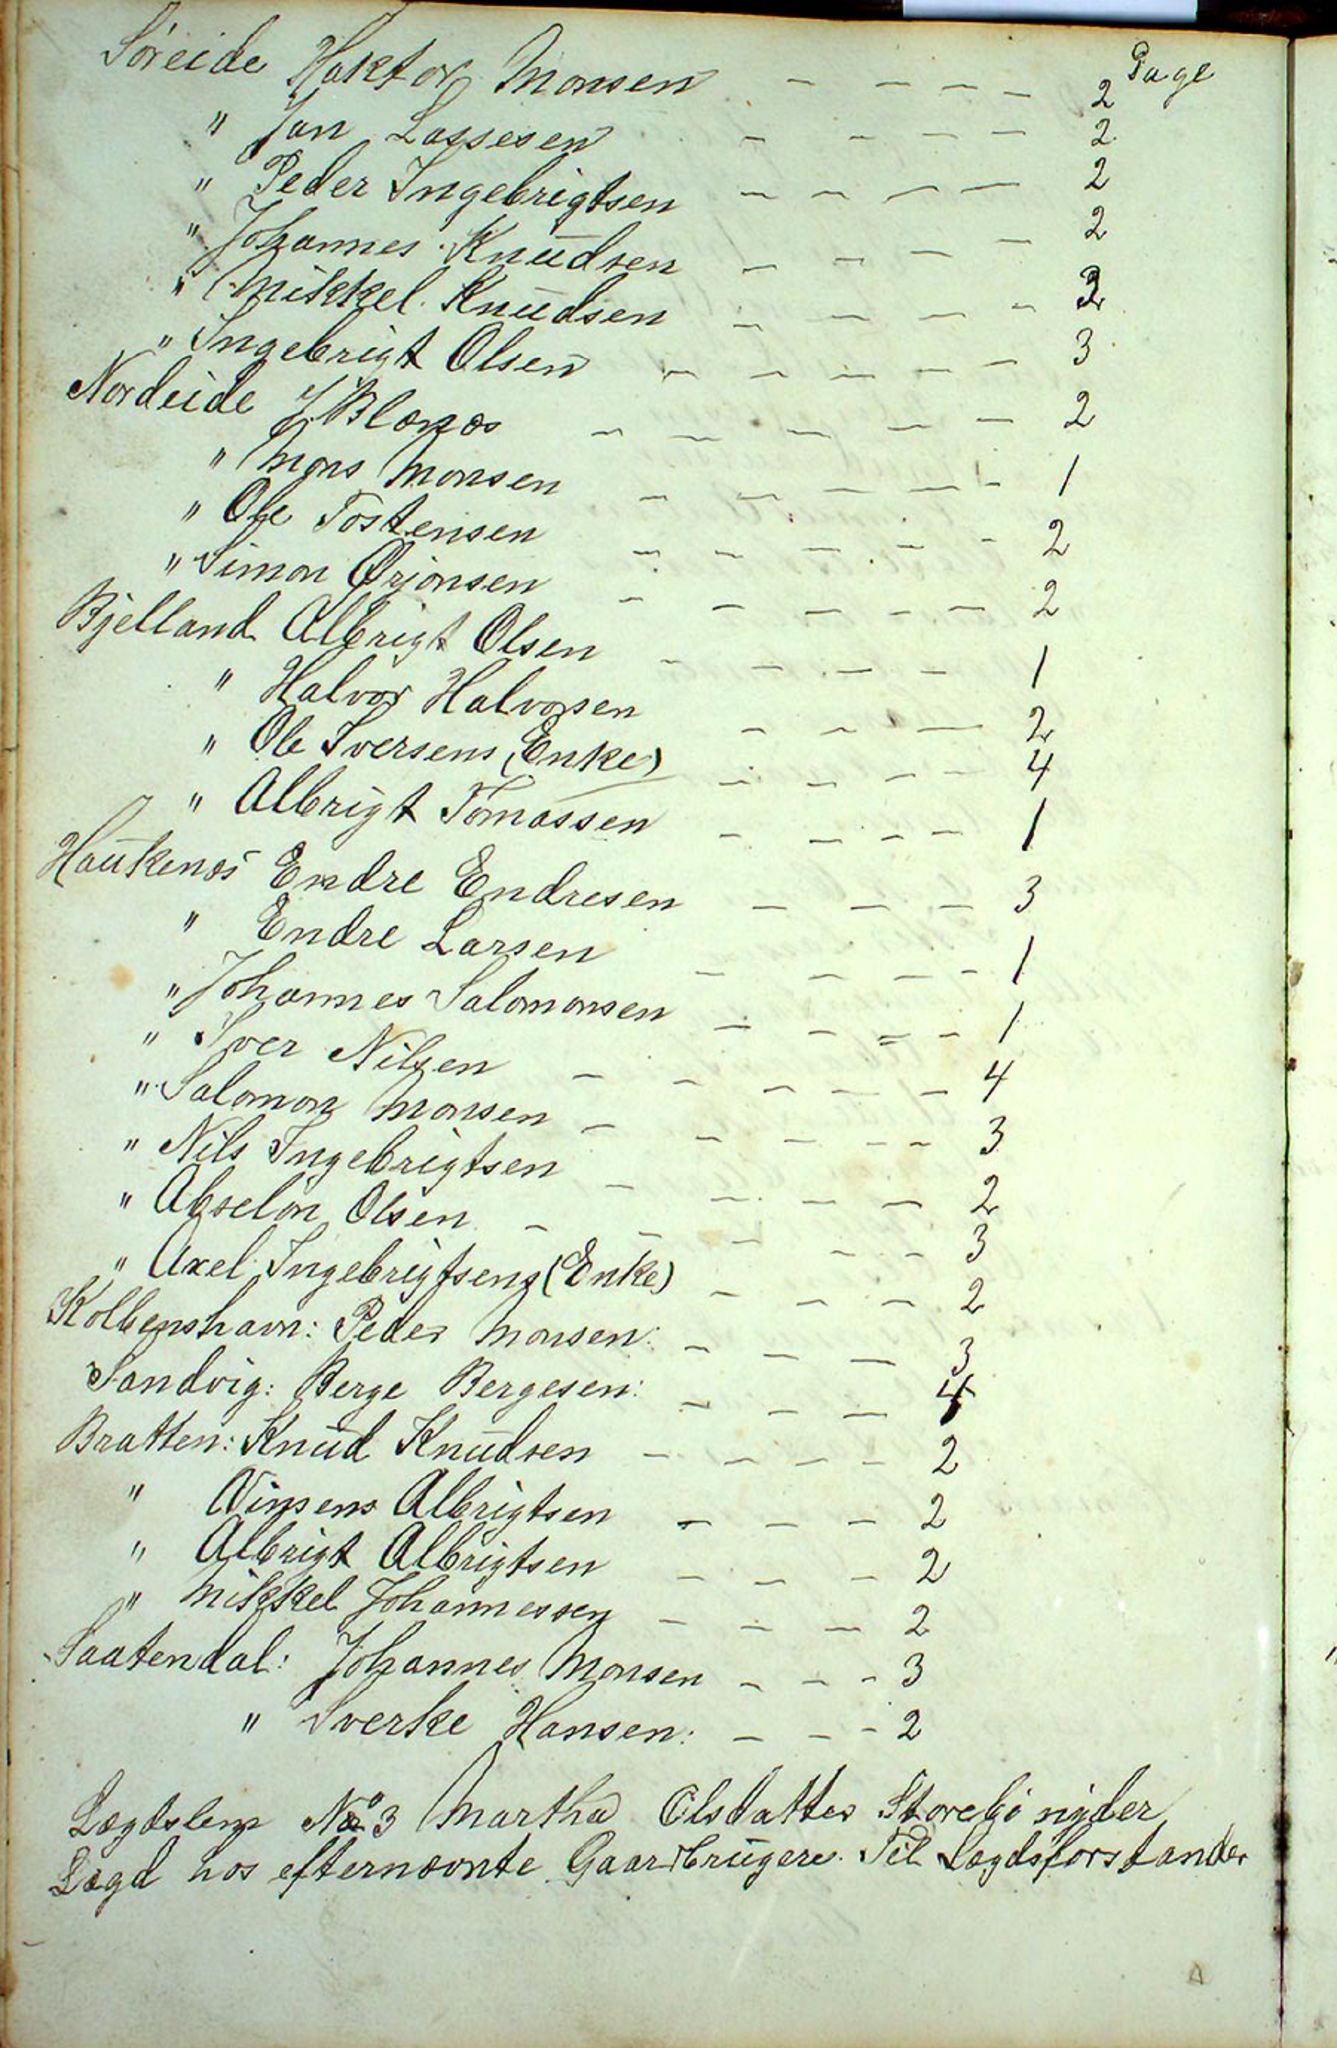 Söreide Haktor Monsen — — — — 2 Dage
" Jan Lassesen — — — — 2
" Peder Ingebrigtsen — — — — 2
" Johannes Knudsen — — — — 2
" Mikkel Knudsen — — — — 2
" Ingebrigt Olsen — — — — — 3
Nordeide J Blænæs — — — — — 2
" Mons Monsen — — — — — 1
" Ole Tostensen — — — — — 2
" Simon Ørjonsen — — — — — 2
Bjelland Albrigt Olsen — — — — 1
" Halvor Halvorsen — — — — 2
" Ole Iversens (Enke) — — — — 4
" Albrigt Tomassen — — — — 1
Haukenæs Endre Endresen — — — 3
" Endre Larsen — — — — 1
" Johannes Salomonsen — — — — 1
" Iver Nilsen — — — — — 4
" Salomon Monsen — — — — — 3
" Nils Ingebrigtsen — — — — 2
" Abselon Olsen — — — — — 3
" Axel Ingebrigtsens (Enke) — — — 2
Kolbenshavn: Peder Monsen: — — — 3
Sandvig: Berge Bergesen: — — — 4
Bratten: Knud Knudsen — — — — 2
" Vinsens Albrigtsen — — — 2
" Albrigt Albrigtsen — — — 2
" Mikkel Johannessen — — — 2
Saatendal: Johannes Monsen — — — 3
" Sverke Hansen: — — — 2
Lægdslem No 3 Martha Olsdatter Storebö nyder
Lægd hos efternævnte Gaardbrugere. Til Lægdsforstander